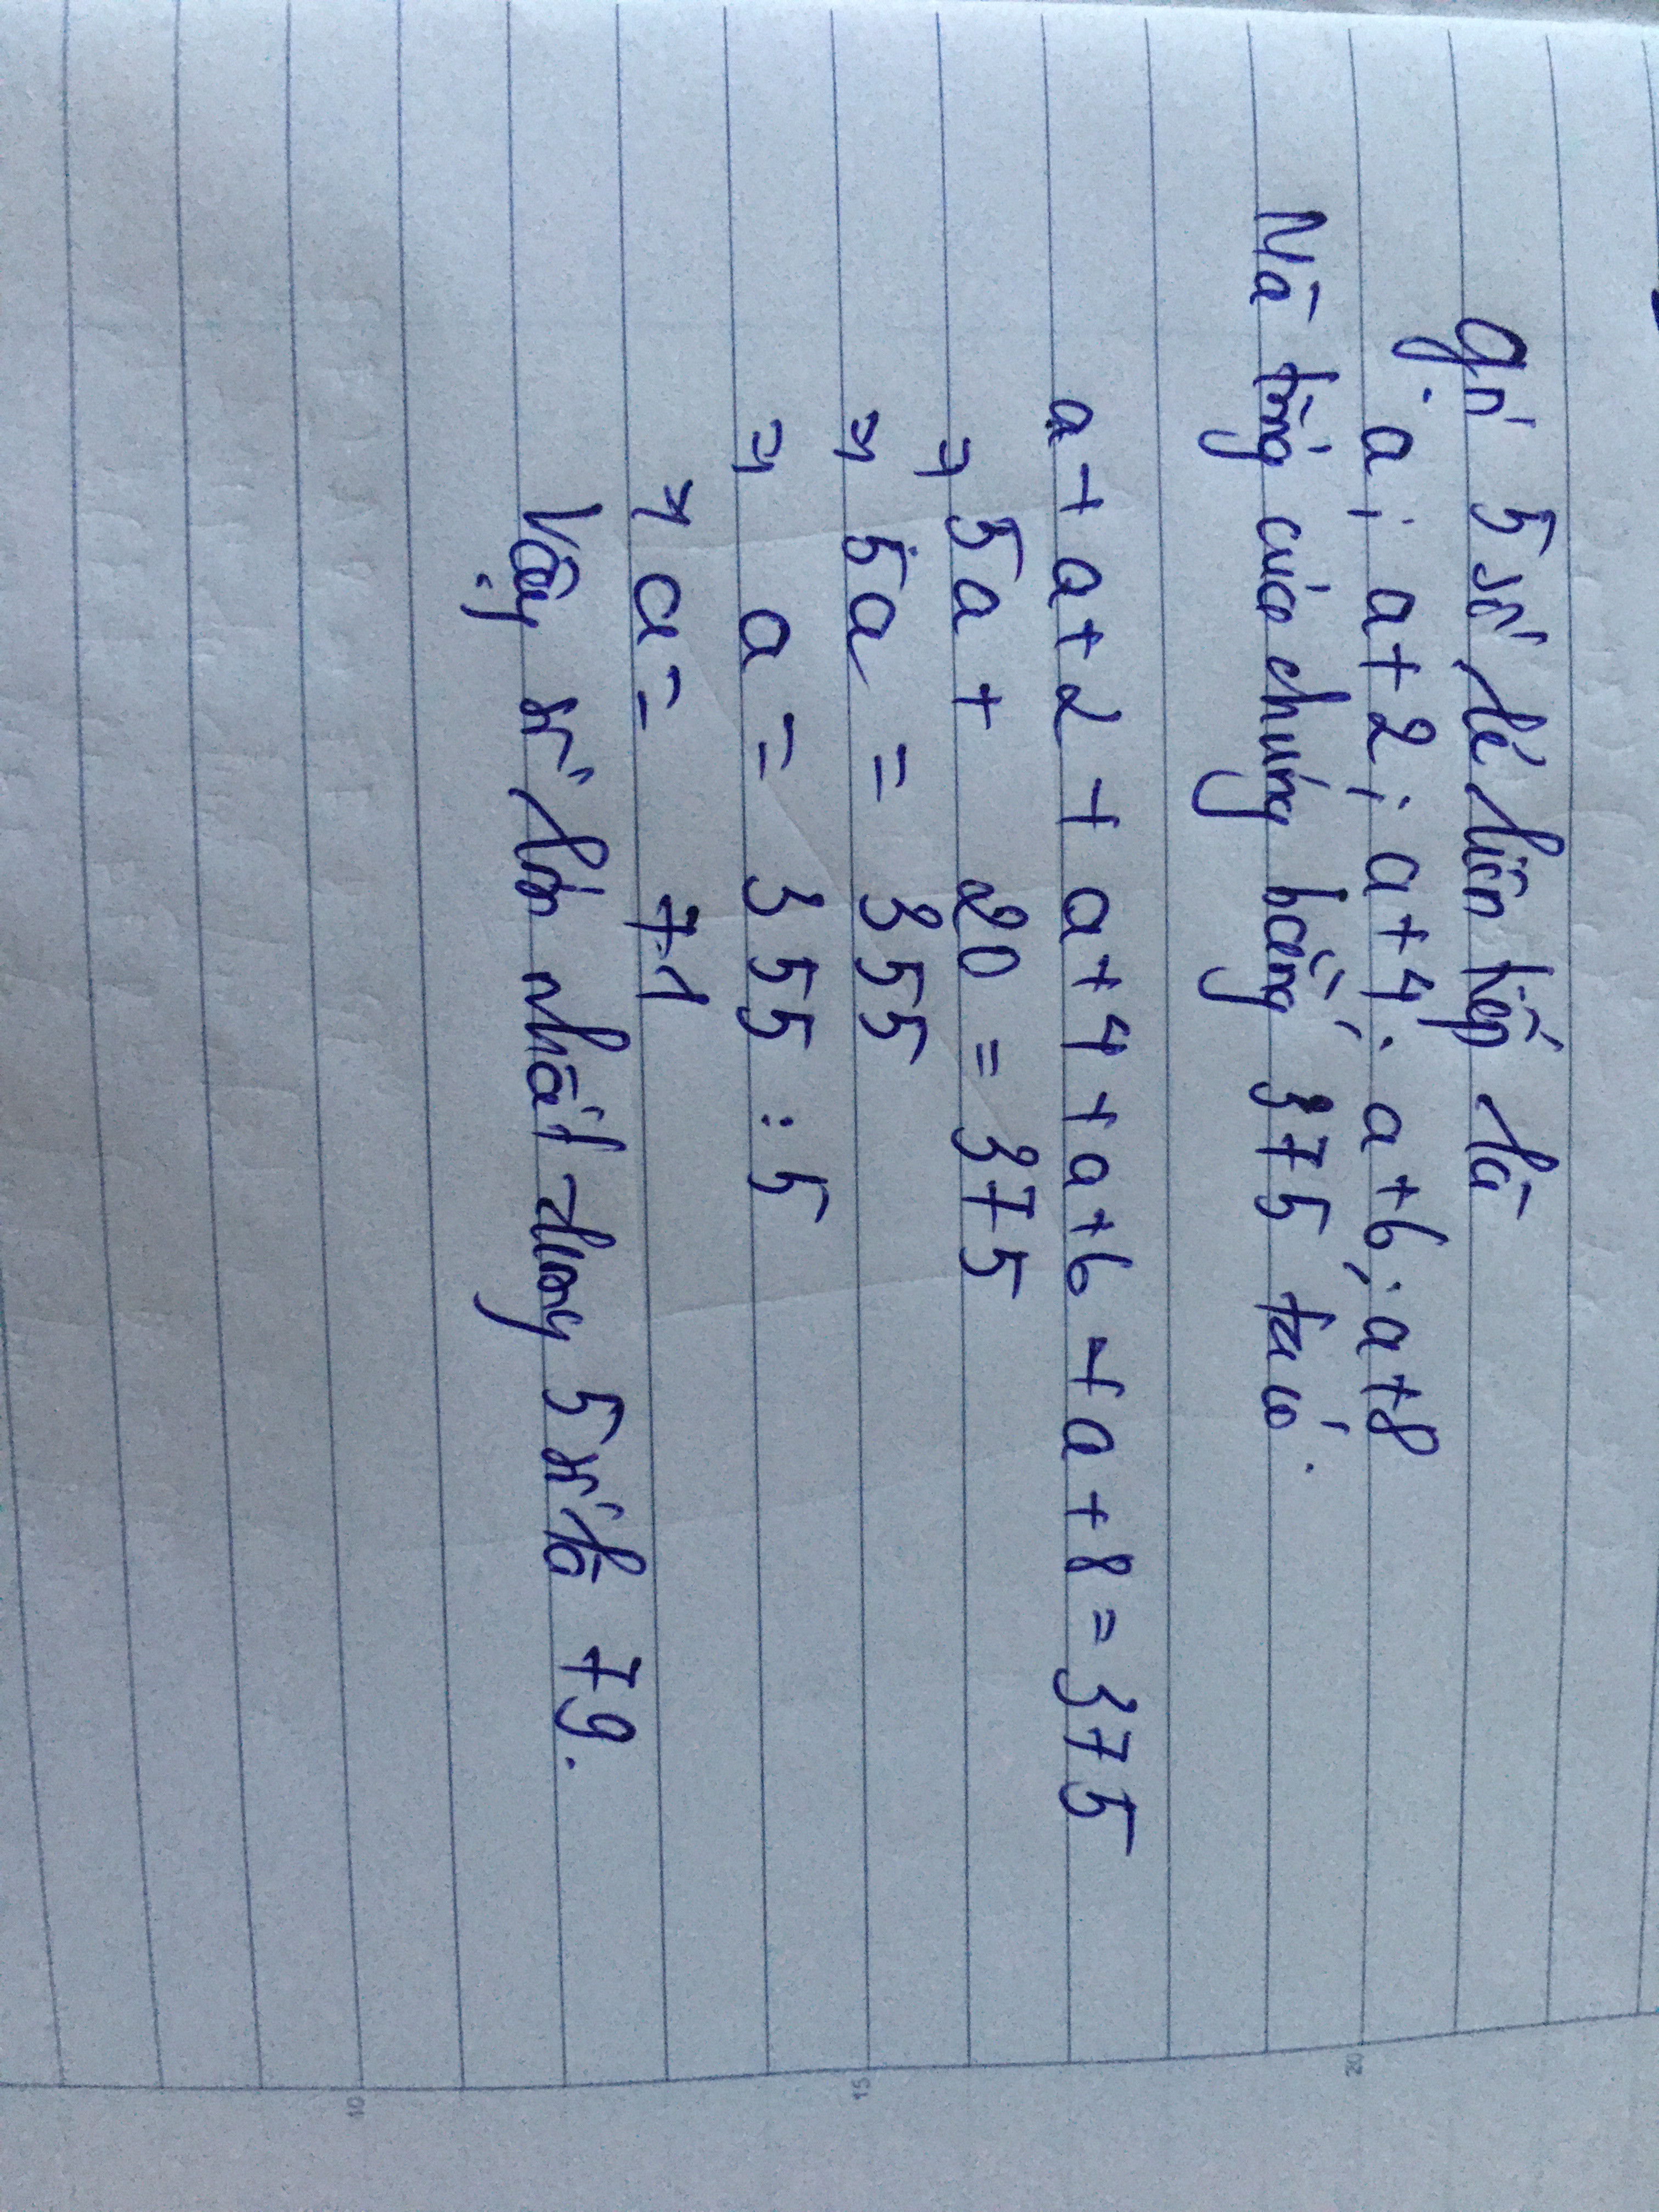 Gọi 5 số lẻ liên tiếp là
a; a+2; a+4; a+6; a+8
Mà tổng của chúng bằng 375 ta có.
a + a+2 + a+4 + a+6 + a+8 = 375
⇒ 5a + 20 = 375
⇒ 5a = 355
⇒ a = 355 : 5
⇒ a = 71
Vậy số lớn nhất trong 5 số là 79.
20
15
10